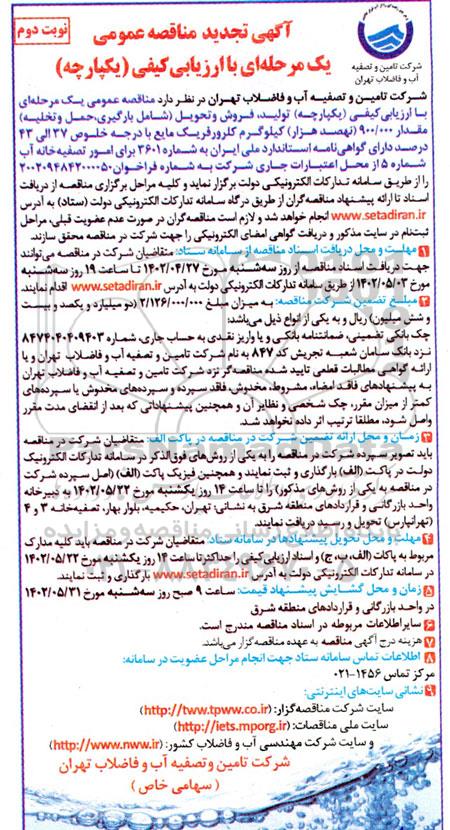 نوبت دوم
آگهی تجدید مناقصه عمومی
یک مرحله‌ای با ارزیابی کیفی (یکپارچه)
شرکت تامین و تصفیه
آب و فاضلاب تهران
شرکت تامین و تصفیه آب و فاضلاب تهران در نظر دارد مناقصه عمومی یک مرحله‌ای
با ارزیابی کیفی (یکپارچه) تولید، فروش و تحویل (شامل بارگیری، حمل و تخلیه)
مقدار ۹۰۰/۰۰۰ (نهصد هزار) کیلوگرم کلرورفریک مایع با درجه خلوص ۳۷ الی ۴۳
درصد دارای گواهی‌نامه استاندارد ملی ایران به شماره ۳۶۰۱ برای امور تصفیه‌خانه آب
شماره ۵ از محل اعتبارات جاری شرکت به شماره فراخوان ۲۰۰۲۰۹۴۸۴۲۰۰۰۰۵۰
را از طریق سامانه تدارکات الکترونیکی دولت برگزار نماید و کلیه مراحل برگزاری مناقصه از دریافت
اسناد تا ارائه پیشنهاد مناقصه‌گران از طریق درگاه سامانه تدارکات الکترونیکی دولت (ستاد) به آدرس
www.setadiran.ir انجام خواهد شد و لازم است مناقصه‌گران در صورت عدم عضویت قبلی، مراحل
ثبت‌نام در سایت مذکور و دریافت گواهی امضای الکترونیکی را جهت شرکت در مناقصه محقق سازند.
۱ مهلت و محل دریافت اسناد مناقصه از سامانه ستاد: متقاضیان شرکت در مناقصه می‌توانند
جهت دریافت اسناد مناقصه از روز سه‌شنبه مورخ ۱۴۰۲/۰۴/۲۷ تا ساعت ۱۹ روز سه‌شنبه
مورخ ۱۴۰۲/۰۵/۰۳ از طریق سامانه تدارکات الکترونیکی دولت به آدرس www.setadiran.ir اقدام نمایند.
۲ مبلغ تضمین شرکت در مناقصه: به میزان مبلغ ۲/۱۲۶/۰۰۰/۰۰۰ (دو میلیارد و یکصد و بیست
و شش میلیون) ریال و به یکی از انواع ذیل می‌باشد:
چک بانکی تضمینی، ضمانتنامه بانکی و یا واریز نقدی به حساب جاری، شماره ۸۴۷۴۰۴۰۴۰۹۴۰۳
نزد بانک سامان شعبه تجریش کد ۸۴۷ به نام شرکت تامین و تصفیه آب و فاضلاب تهران و یا
ارائه گواهی مطالبات قطعی تایید شده مناقصه‌گر نزد شرکت تامین و تصفیه آب و فاضلاب تهران
به پیشنهادهای فاقد امضاء، مشروط، مخدوش، فاقد سپرده و سپرده‌های مخدوش یا سپرده‌های
کمتر از میزان مقرر، چک شخصی و نظایر آن و همچنین پیشنهاداتی که بعد از انقضای مدت مقرر
واصل شود، مطلقا ترتیب اثر داده نخواهد شد.
۳ زمان و محل ارائه تضمین شرکت در مناقصه در پاکت الف: متقاضیان شرکت در مناقصه
باید تصویر سپرده شرکت در مناقصه را به یکی از روش‌های فوق‌الذکر در سامانه تدارکات الکترونیک
دولت در پاکت (الف) بارگذاری و ثبت نمایند و همچنین فیزیک پاکت (الف) (اصل سپرده شرکت
در مناقصه به یکی از روش‌های مذکور) را تا ساعت ۱۴ روز یکشنبه مورخ ۱۴۰۲/۰۵/۲۲ به دبیرخانه
واحد بازرگانی و قراردادهای منطقه شرق به نشانی: تهران، حکیمیه، بلوار بهار، تصفیه‌خانه ۳ و ۴
(تهرانپارس) تحویل و رسید دریافت نمایند.
۴ مهلت و محل تحویل پیشنهادها در سامانه ستاد: متقاضیان شرکت در مناقصه باید کلیه مدارک
مربوط به پاکات (الف، ب، ج) و اسناد ارزیابی کیفی را حداکثر تا ساعت ۱۴ روز یکشنبه مورخ ۱۴۰۲/۰۵/۲۲
در سامانه تدارکات الکترونیکی دولت به آدرس www.setadiran.ir بارگذاری و ثبت نمایند.
۵ زمان و محل گشایش پیشنهاد قیمت: ساعت ۹ صبح روز سه‌شنبه مورخ ۱۴۰۲/۰۵/۳۱
در واحد بازرگانی و قراردادهای منطقه شرق
۶ سایر اطلاعات مربوطه در اسناد مناقصه مندرج است.
۷ هزینه درج آگهی مناقصه به عهده مناقصه‌گزار می‌باشد.
۸ اطلاعات تماس سامانه ستاد جهت انجام مراحل عضویت در سامانه:
مرکز تماس ۱۴۵۶-۰۲۱
۹ نشانی سایت‌های اینترنتی:
سایت شرکت مناقصه‌گزار: (http://tww.tpww.co.ir)
سایت ملی مناقصات: (http://iets.mporg.ir)
و سایت شرکت مهندسی آب و فاضلاب کشور: (http://www.nww.ir)
شرکت تامین و تصفیه آب و فاضلاب تهران
(سهامی خاص)